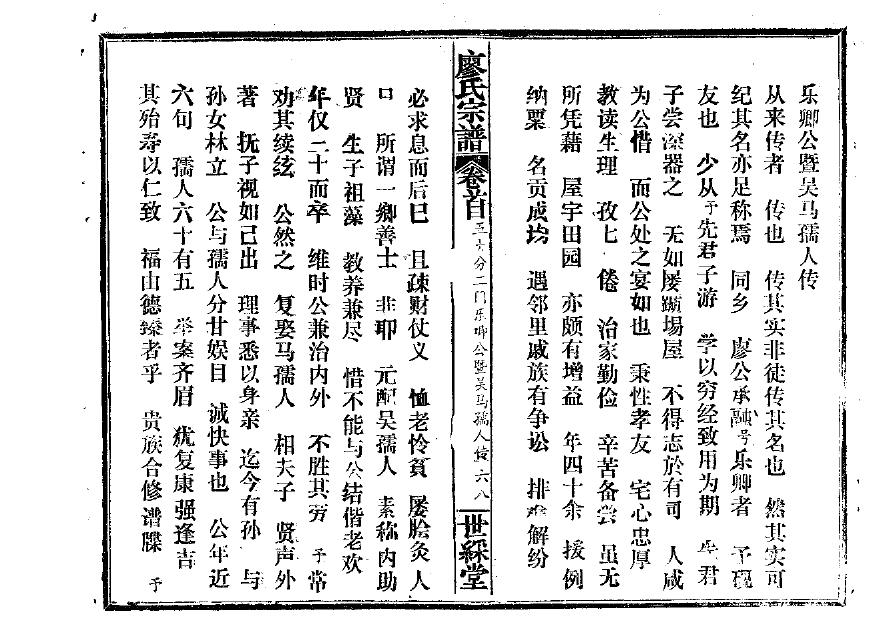 乐卿公暨吴马孺人传
从来传者 传也 传其实非徒传其名也 然其实可
纪其名亦足称焉 同乡 廖公承融号乐卿者 予砚
友也 少从于先君子游 学以穷经致用为期 先君
子尝深器之 无如屡踬场屋 不得志於有司 人咸
为公惜 而公处之宴如也 秉性孝友 宅心忠厚
教读生理 孜七 倦 治家勤俭 辛苦备尝 虽无
所凭藉 屋宇田园 亦颇有增益 年四十余 援例
纳粟 名贡成均 遇邻里戚族有争讼 排难解纷
廖氏宗谱 卷首 五十分二门乐卿公暨吴马孺人传 六八 世綵堂
必求息而后已 且疎财仗义 恤老怜贫 屡脍灸人
口 所谓一鄉善士 非耶 元配吴孺人 素称内助
贤 生子祖藻 教养兼尽 惜不能与公结偕老欢
年仅二十而卒 维时公兼治内外 不胜其劳 于常
劝其续弦 公然之 复娶马孺人 相夫子 贤声外
著 抚子视如己出 理事悉以身亲 迄今有孙 与
孙女林立 公与孺人分甘娱目 诚快事也 公年近
六旬 孺人六十有五 举案齐眉 犹复康强逢吉
其殆寿以仁致 福由德臻者乎 贵族合修谱牒 于